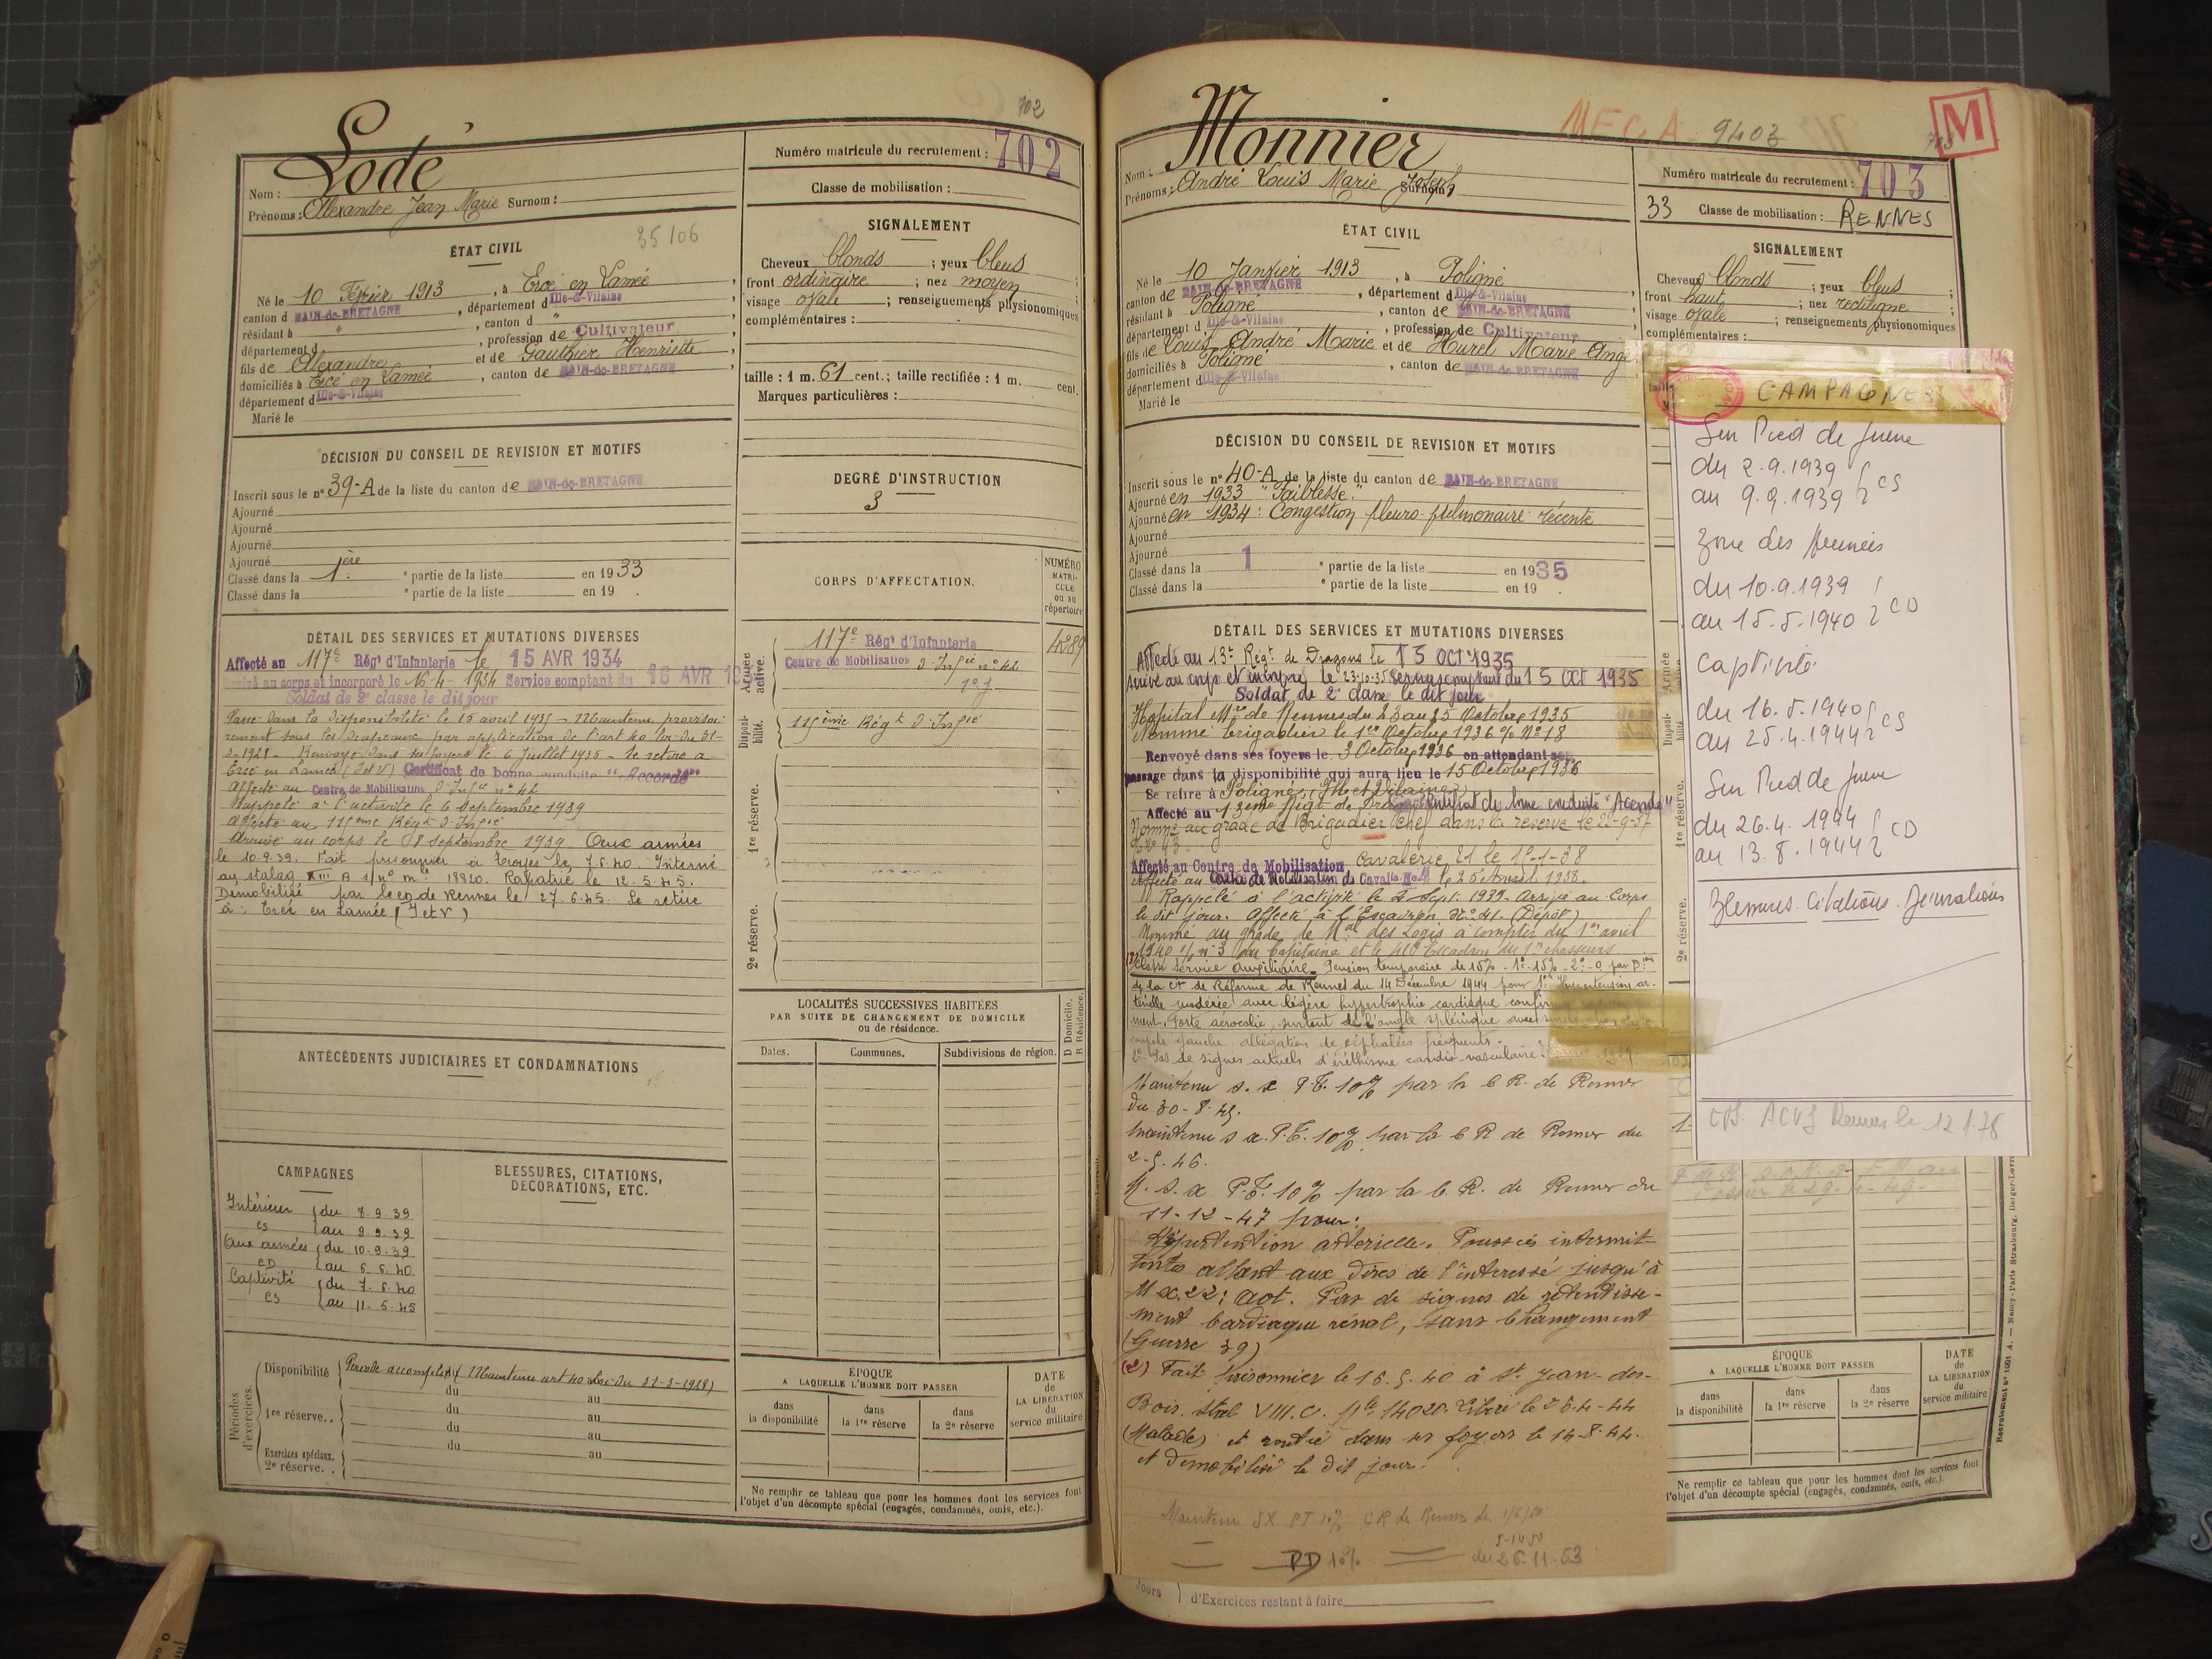 702
Lodé
Nom :
Prénoms : Alexandre Jean Marie Surnom :
Numéro matricule du recrutement : 702
Classe de mobilisation :
ÉTAT CIVIL
35106
Né le 10 Février 1913, à Ercé en Lamée,
canton d BAIN-de-BRETAGNE, département d Ille-&-Vilaine
résidant à " , canton d "
département d , profession de Cultivateur
fils de Alexandre et de Gauthier Henriette,
domiciliés à Ercé en Lamée, canton de BAIN-de-BRETAGNE
département d Ille-&-Vilaine
Marié le
SIGNALEMENT
Cheveux blonds ; yeux bleus ;
front ordinaire ; nez moyen ;
visage ovale ; renseignements physionomiques
complémentaires :
taille : 1 m. 61 cent. ; taille rectifiée : 1 m. cent.
Marques particulières :
DÉCISION DU CONSEIL DE REVISION ET MOTIFS
Inscrit sous le n° 39-A de la liste du canton de BAIN-de-BRETAGNE
Ajourné
Ajourné
Ajourné
Ajourné
Classé dans la 1ère ° partie de la liste en 1933
Classé dans la ° partie de la liste en 19 .
DEGRÉ D'INSTRUCTION
3
CORPS D'AFFECTATION.
NUMÉRO MATRI-CULE ou au répertoire
DÉTAIL DES SERVICES ET MUTATIONS DIVERSES
Affecté au 117e Régt d'Infanterie le 15 AVR 1934
Arrivé au corps et incorporé le 16-4-1934 Service comptant du 16 AVR 19
Soldat de 2e classe le dit jour
Passé dans la disponibilité le 15 avril 1935 - Maintenu provisoi-
rement sous les drapeaux par application de l'art 40 loi du 31-
3-1928 - Renvoyé dans ses foyers le 6 Juillet 1935 - Se retire à
Ercé en Lamée (I et V) Certificat de bonne conduite "Accordé"
Affecté au Centre de Mobilisation d'Infie n° 42
Rappelé à l'activité le 6 Septembre 1939
Affecté au 115ème Régt d'Infie
Arrivé au corps le 8 septembre 1939. Aux armées
le 10.9.39. Fait prisonnier à Troyes le 7.6.40. Interné
au stalag XIII A s/ n° mle 18820. Rapatrié le 12.5.45.
Démobilisé par le CD de Rennes le 27.6.45. Se retire
à : Ercé en Lamée (I et V)
Armée active.
117e Régt d'Infanterie 4289
Centre de Mobilisation d'Infie n° 42
Disponi-bilité.
115ème Régt d'Infie
1re réserve.
2e réserve.
ANTÉCÉDENTS JUDICIAIRES ET CONDAMNATIONS
LOCALITÉS SUCCESSIVES HABITÉES
PAR SUITE DE CHANGEMENT DE DOMICILE
ou de résidence.
D Domicile.
R Résidence.
Dates. Communes. Subdivisions de région.
CAMPAGNES
Intérieur du 8.9.39
CS au 9.9.39
Aux armées du 10.9.39
CD au 6.6.40
Captivité du 7.6.40
CS au 11.5.45
BLESSURES, CITATIONS,
DÉCORATIONS, ETC.
Périodes d'exercices.
Disponibilité Période accomplie (Maintenu art 40 Loi du 31-3-1928)
du au
1re réserve. . du au
du au
du au
Exercices spéciaux.
2e réserve. .
ÉPOQUE
A LAQUELLE L'HOMME DOIT PASSER
dans la disponibilité
dans la 1re réserve
dans la 2e réserve
DATE de LA LIBÉRATION du service militaire
Ne remplir ce tableau que pour les hommes dont les services font
l'objet d'un décompte spécial (engagés, condamnés, omis, etc.).
MEGA 9403
M
Monnier
Nom :
Prénoms : André Louis Marie Joseph Surnom :
Numéro matricule du recrutement : 703
33 Classe de mobilisation : RENNES
ÉTAT CIVIL
Né le 10 Janvier 1913, à Poligné
canton de BAIN-de-BRETAGNE, département d Ille-&-Vilaine
résidant à Poligné, canton de BAIN-de-BRETAGNE
département d Ille-&-Vilaine, profession de Cultivateur
fils de Louis André Marie et de Hurel Marie Ange
domiciliés à Poligné, canton de BAIN-de-BRETAGNE
département d Ille-&-Vilaine
Marié le
SIGNALEMENT
Cheveux blonds ; yeux bleus ;
front haut ; nez rectiligne ;
visage ovale ; renseignements physionomiques
complémentaires :
DÉCISION DU CONSEIL DE REVISION ET MOTIFS
Inscrit sous le n° 40-A de la liste du canton de BAIN-de-BRETAGNE
Ajourné en 1933 "Faiblesse."
Ajourné en 1934 : Congestion pleuro-pulmonaire récente
Ajourné
Ajourné
Classé dans la 1 ° partie de la liste en 1935
Classé dans la ° partie de la liste en 19 .
DÉTAIL DES SERVICES ET MUTATIONS DIVERSES
Affecté au 13e Régt de Dragons le 15 OCT 1935
Arrivé au corps et incorporé le 23-10-35 Service comptant du 15 OCT 1935
Soldat de 2e classe le dit jour
Hôpital Mre de Rennes du 23 au 25 Octobre 1935
Nommé brigadier le 1er Octobre 1936 % N° 18
Renvoyé dans ses foyers le 3 Octobre 1936 en attendant son
passage dans la disponibilité qui aura lieu le 15 Octobre 1936
Se retire à Poligné (Ille et Vilaine)
Affecté au 13ème Régt de Dragons Certificat de bonne conduite "Accordé"
Nommé au grade de Brigadier Chef dans la réserve le 22-9-37
Affecté au Centre de Mobilisation Cavalerie 21 le 1°-1-38
Affecté au Centre de Mobilisation de Cavalie le 25 Avril 1938.
Rappelé à l'activité le 2 Sept. 1939. Arrivé au Corps
le dit jour. Affecté à l'Escadron N° 41 (Dépôt)
Nommé au grade de Mal des Logis à compter du 1er avril
1940 s/ n° 3 du Capitaine et le 410 Escadron du 1er chasseurs
Classé Service Auxiliaire. Pension temporaire de 15% - 1° 15% - 2° 0 par
de la Con de Réforme de Rennes du 14 Décembre 1944 pour 1° Hypertension ar-
térielle modérée avec légère hypertrophie cardiaque
ment. Forte aérocolie, surtout de l'angle splénique avec
gauche. allégation de céphalées fréquents.
2° Pas de signes actuels d'éréthisme cardio-vasculaire.
Maintenu s. x P.T. 10% par la C R. de Rennes
du 30-8-45.
Maintenu s x. P.T. 10% par la C R de Rennes du
2-5-46.
M. S. x P.T. 10% par la C. R. de Rennes du
11-12-47 pour :
Hypertention arterielle. Poussées intermit-
tentes allant aux dires de l'interessé jusqu'à
Mx. 22 ; act. Pas de signes de retentisse-
ment Cardiaque rénal, sans Changement
(Guerre 39)
(2) Fait prisonnier le 16.5.40 à St Jean-des-
Bois. Stal VIII.C. Mle 14020. Libéré le 26.4-44
(Malade) et rentré dans ses foyers le 14-8-44.
et démobilisé le dit jour.
Maintenu SX PT 10% CR de Rennes du
5-10-50
— PD 10% — du 26.11.53
Jours d'Exercices restant à faire
CAMPAGNES
Sur Pied de guerre
du 2.9.1939
au 9.9.1939 CS
Zone des Armées
du 10.9.1939
au 15.5.1940 CD
Captivité
du 16.5.1940
au 25.4.1944 CS
Sur Pied de guerre
du 26.4.1944
au 13.8.1944 CD
Blessures. Citations. Décorations
ACVG Rennes le 12.1.76
Armée
Disponi-bilité
1re réserve.
2e réserve.
ÉPOQUE
A LAQUELLE L'HOMME DOIT PASSER
dans la disponibilité
dans la 1re réserve
dans la 2e réserve
DATE de LA LIBÉRATION du service militaire
Ne remplir ce tableau que pour les hommes dont les services font
l'objet d'un décompte spécial (engagés, condamnés, omis, etc.).